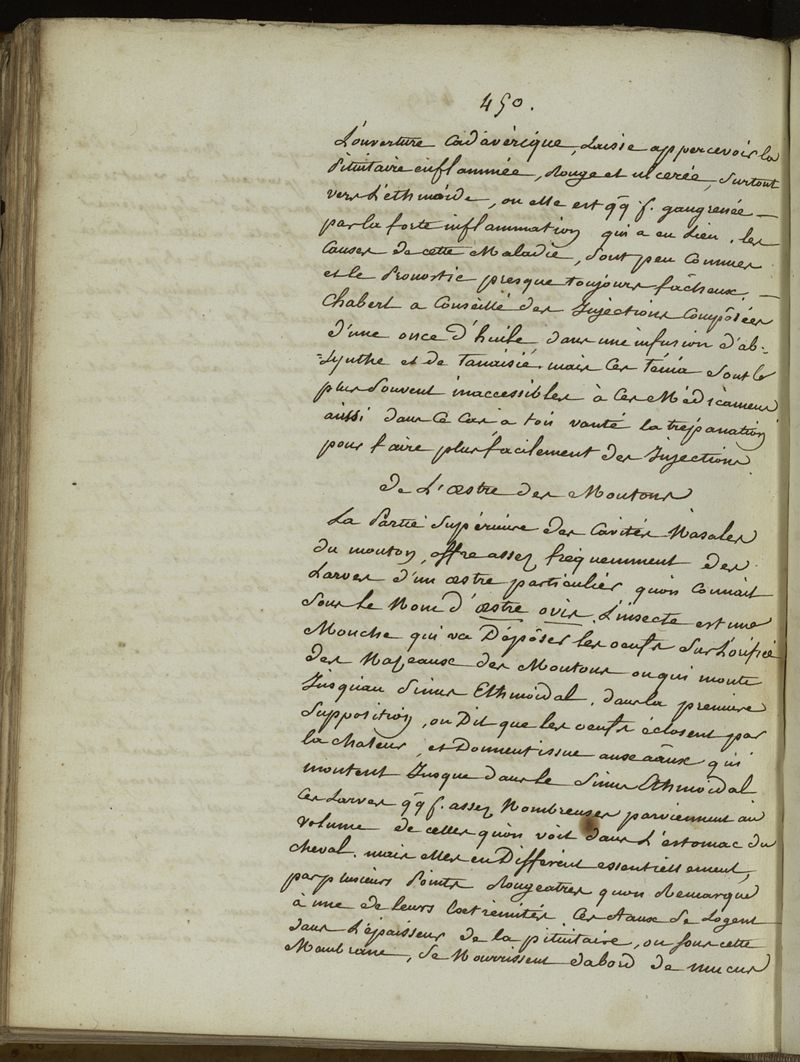 450.
L'ouverture cadavérique, laisse appercevoir la
pituitaire enflammée, Rouge et ulcerée, surtout
vers L'ethmoïde, ou elle est qq f. gangrenée —
par la forte inflammation qui a eu Lieu. les
Causes de cette Maladie, sont peu Connues
et le Pronostic presque toujours fâcheux. —
Chabert a Conseillé des Injections Composées
d'une once d'huile dans une infusion d'ab=
=synthe et de Tanaisié. mais ces Ténia sont le
plus Souvent inaccessibles à ces Médicamens
aussi dans ce Cas a ton vanté la trépanation
pour faire plus facilement des Injections
de L'œstre des Moutons
La Partie Supérieure des Cavités Nasales
du mouton, offre assez fréquemment des
Larves d'un œstre particulier quon Connait
sous le Nom d'œstre ovis. L'insecte est une
Mouche qui va Dépôser les oeufs sur L'orifice
des Nazeaux des Moutons ou qui monte
Jusquau Sinus Ethmoïdal. dans la premiere
supposition, on Dit que les oeufs éclosent par
la chaleur, et Donnent issue aux aâux qui
montent Jusque dans le Sinus Ethmoïdal
Ces Larves qq f. assez Nombreuses parviennent au
volume de celles qu'on voit dans L'estomac du
cheval. mais elles en Different essentiellement,
par plusieurs points Rougeatres quon Remarque
à une de leurs Extrémités. Ces Aaux se Logent
dans L'épaisseur de la pituitaire, ou sous cette
Membrane, se Nourrissent dabord de mucus